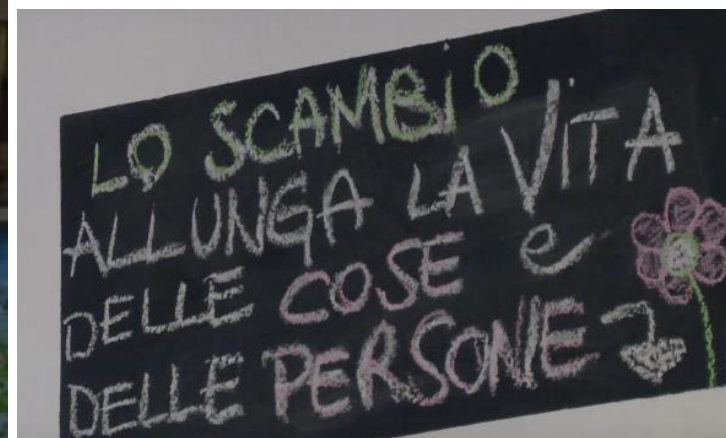 LO SCAMBiO
ALLUNGA LA ViTA
DELLE COSE e
DELLE PERSONE